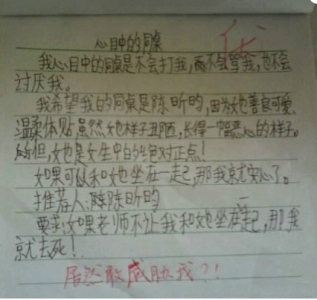 心目中的同桌
优
我心目中的同桌是不会打我,而不会骂我,也不会
讨厌我。
我希望我的同桌是陈昕昀,因为她善良可爱、
温柔体贴虽然她样子丑陋,长得一副恶心的样子。
但,她是女生中的绝对正点!
如果可以和她坐在一起,那我就安心了。
推荐人:陈昕昀
要求:如果老师不让我和她坐在一起,那我
就去死!
居然敢威胁我?!